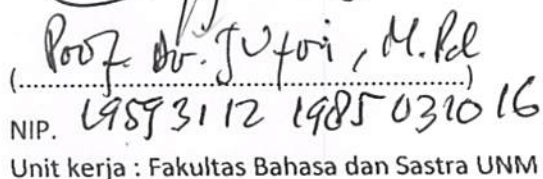 Prof. Dr. Jufri, M.Pd
(............................................................)
NIP. 19593112 198503 10 16
Unit kerja : Fakultas Bahasa dan Sastra UNM